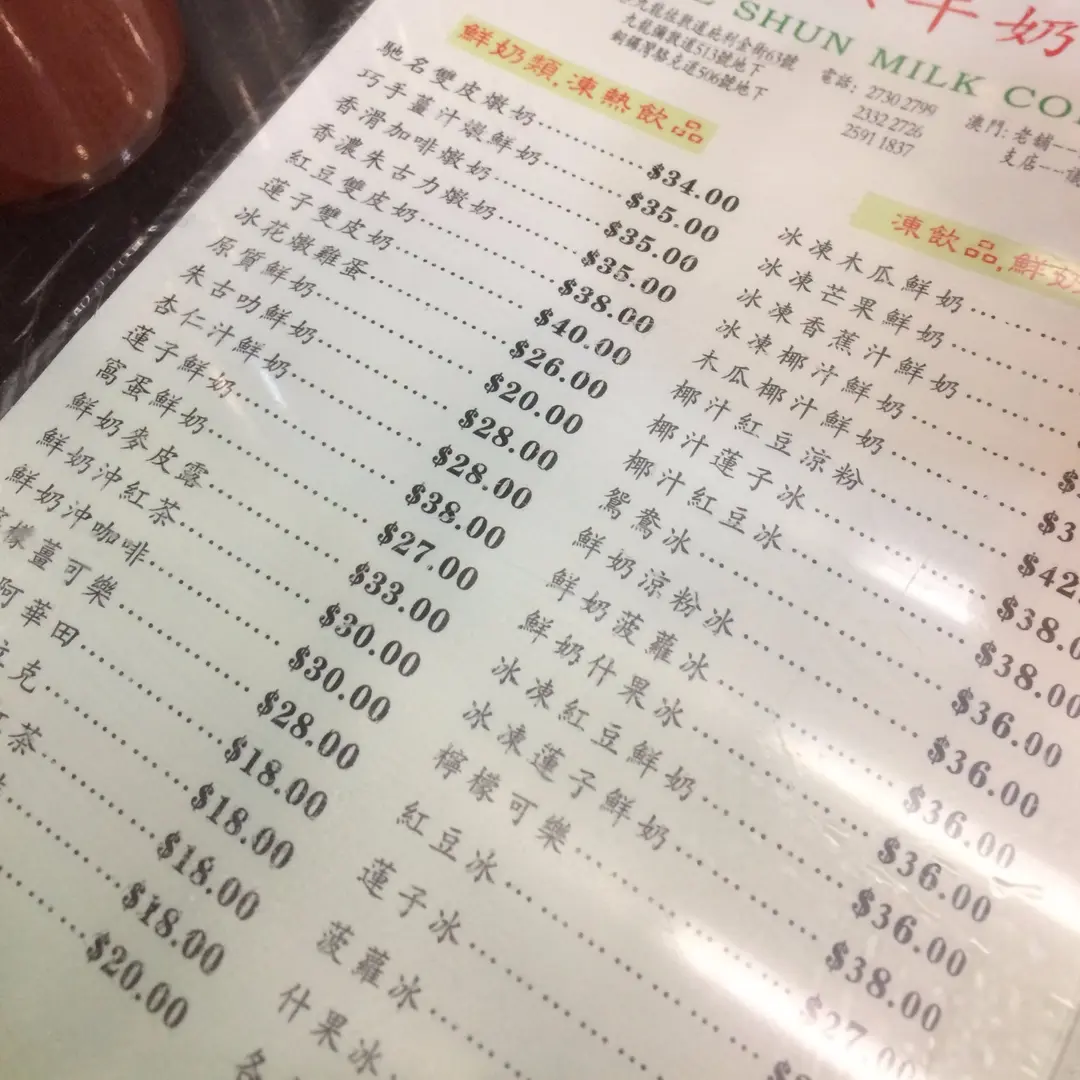 羊奶
SHUN MILK CO
九龍佐敦道庇利金街63號
九龍彌敦道513號地下
銅鑼灣駱克道506號地下
電話: 2730 2799
2332 2726
2591 1837
澳門: 老舖
支店
鮮奶類,凍熱飲品
馳名雙皮燉奶 $34.00
巧手薑汁燉鮮奶 $35.00
香滑加啡燉奶 $35.00
香濃朱古力燉奶 $35.00
紅豆雙皮奶 $38.00
蓮子雙皮奶 $40.00
冰花燉雞蛋 $26.00
原質鮮奶 $20.00
朱古叻鮮奶 $28.00
杏仁汁鮮奶 $28.00
蓮子鮮奶 $38.00
窩蛋鮮奶 $27.00
鮮奶麥皮露 $33.00
鮮奶沖紅茶 $30.00
鮮奶沖咖啡 $30.00
檬薑可樂 $28.00
阿華田 $18.00
克 $18.00
茶 $18.00
$18.00
$20.00
凍飲品,鮮奶
冰凍木瓜鮮奶
冰凍芒果鮮奶
冰凍香蕉汁鮮奶
冰凍椰汁鮮奶
木瓜椰汁鮮奶 $3
椰汁紅豆涼粉 $42
椰汁蓮子冰 $38.0
椰汁紅豆冰 $38.00
鴛鴦冰 $36.00
鮮奶涼粉冰 $36.00
鮮奶菠蘿冰 $36.00
鮮奶什果冰 $36.00
冰凍紅豆鮮奶 $36.00
冰凍蓮子鮮奶 $38.00
檸檬可樂 $27.00
紅豆冰
蓮子冰
菠蘿冰
什果冰
各